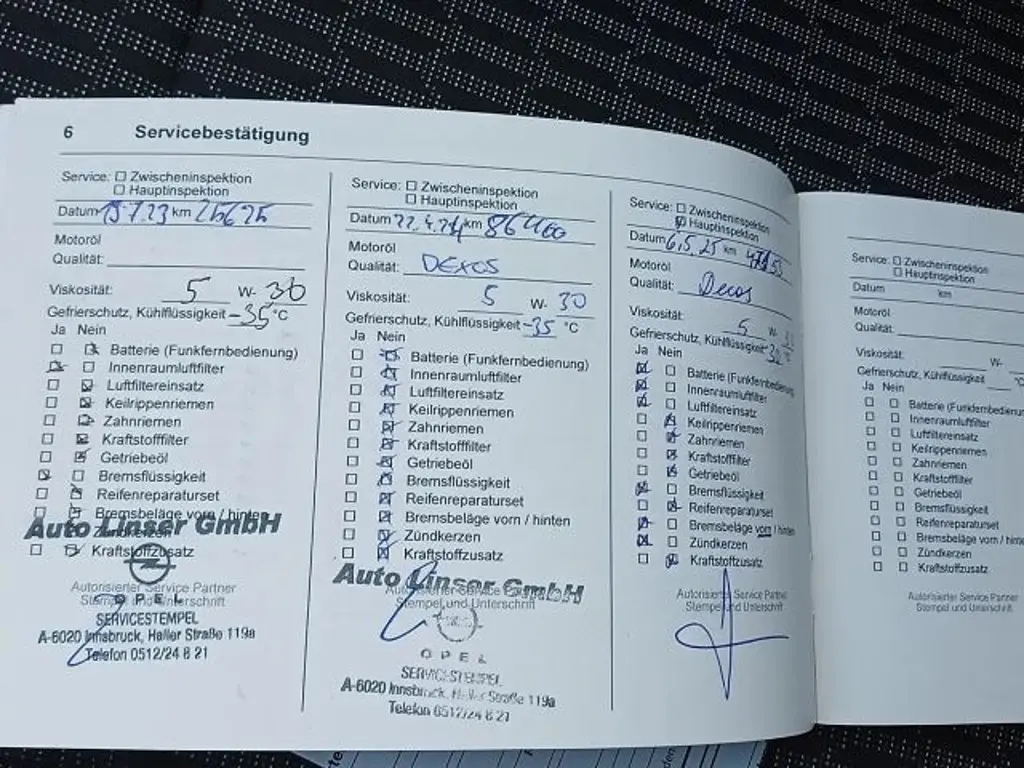 6 Servicebestätigung
Service: Zwischeninspektion
Hauptinspektion
Datum 19.7.23 km 25625
Motoröl
Qualität:
Viskosität: 5 W- 30
Gefrierschutz, Kühlflüssigkeit -35 °C
Ja Nein
Batterie (Funkfernbedienung)
Innenraumluftfilter
Luftfiltereinsatz
Keilrippenriemen
Zahnriemen
Kraftstofffilter
Getriebeöl
Bremsflüssigkeit
Reifenreparaturset
Bremsbeläge vorn / hinten
Auto Linser GmbH
Zündkerzen
Kraftstoffzusatz
Autorisierter Service Partner
Stempel und Unterschrift
OPEL
SERVICESTEMPEL
A-6020 Innsbruck, Haller Straße 119a
Telefon 0512/24 8 21
Service: Zwischeninspektion
Hauptinspektion
Datum 22.4.24 km
Motoröl
Qualität: DEXOS
Viskosität: 5 W- 30
Gefrierschutz, Kühlflüssigkeit -35 °C
Ja Nein
Batterie (Funkfernbedienung)
Innenraumluftfilter
Luftfiltereinsatz
Keilrippenriemen
Zahnriemen
Kraftstofffilter
Getriebeöl
Bremsflüssigkeit
Reifenreparaturset
Bremsbeläge vorn / hinten
Zündkerzen
Kraftstoffzusatz
Auto Linser GmbH
Autorisierter Service
Stempel und Unterschrift
OPEL
SERVICESTEMPEL
A-6020 Innsbruck, Haller Straße 119a
Telefon 0512/24 8 21
Service: Zwischeninspektion
Hauptinspektion
Datum 6.5.25 km
Motoröl
Qualität:
Viskosität: 5 W-
Gefrierschutz, Kühlflüssigkeit °C
Ja Nein
Batterie (Funkfernbedienung
Innenraumluftfilter
Luftfiltereinsatz
Keilrippenriemen
Zahnriemen
Kraftstofffilter
Getriebeöl
Bremsflüssigkeit
Reifenreparaturset
Bremsbeläge vorn / hinten
Zündkerzen
Kraftstoffzusatz
Autorisierter Service Partner
Stempel und Unterschrift
Service: Zwischeninspektion
Hauptinspektion
Datum km
Motoröl
Qualität:
Viskosität: W-
Gefrierschutz, Kühlflüssigkeit °C
Ja Nein
Batterie (Funkfernbedienun
Innenraumluftfilter
Luftfiltereinsatz
Keilrippenriemen
Zahnriemen
Kraftstofffilter
Getriebeöl
Bremsflüssigkeit
Reifenreparaturset
Bremsbeläge vorn / hinte
Zündkerzen
Kraftstoffzusatz
Autorisierter Service Partner
Stempel und Unterschrift